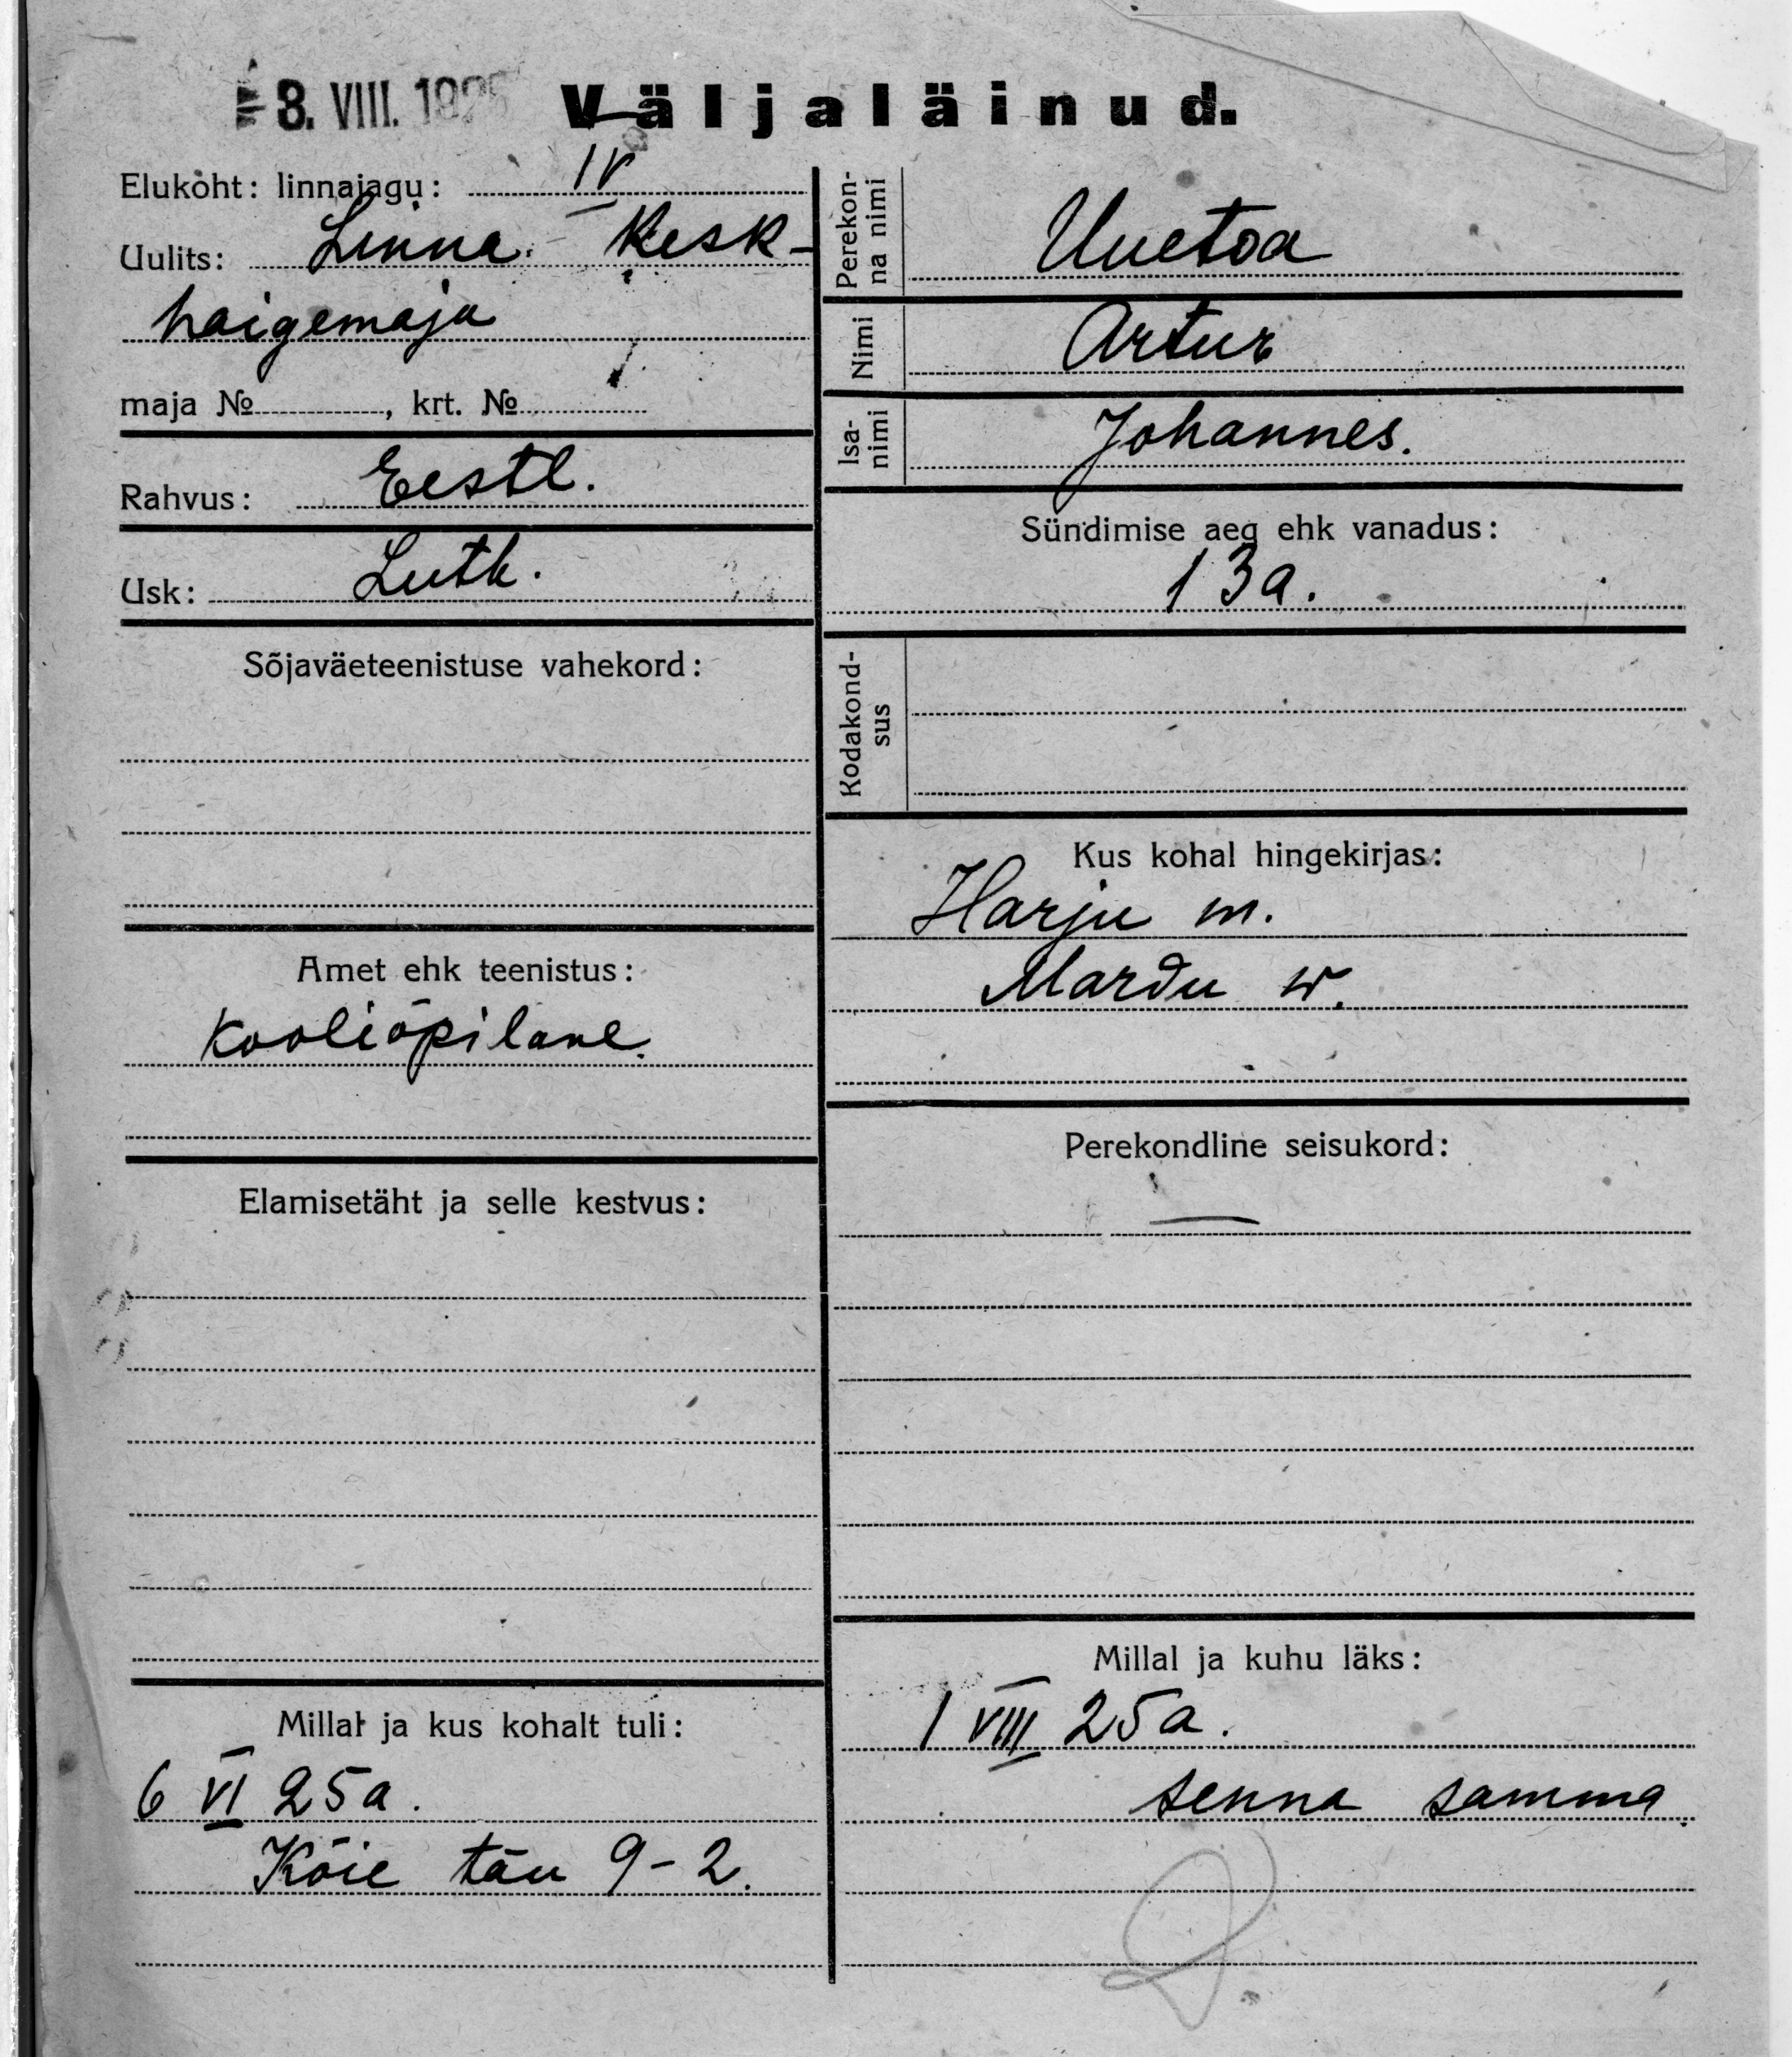 8. VIII. 1925
Väljaläinud.
Elukoht: linnajagu: IV
Uulits: Linna Kesk-
haigemaja
maja №, krt. №
Rahvus: Eestl.
Usk: Luth.
Sõjaväeteenistuse vahekord:
Amet ehk teenistus:
Kooliõpilane.
Elamisetäht ja selle kestvus:
Millal ja kus kohalt tuli:
6 VI 25a.
Köie tän 9-2.
Perekon-
na nimi
Uuetoa
Nimi
Artur
Isa-
nimi
Johannes.
Sündimise aeg ehk vanadus:
13a.
Kodakond-
sus
Kus kohal hingekirjas:
Harju m.
Mardu w.
Perekondline seisukord:
—
Millal ja kuhu läks:
1 VIII 25a.
senna samma